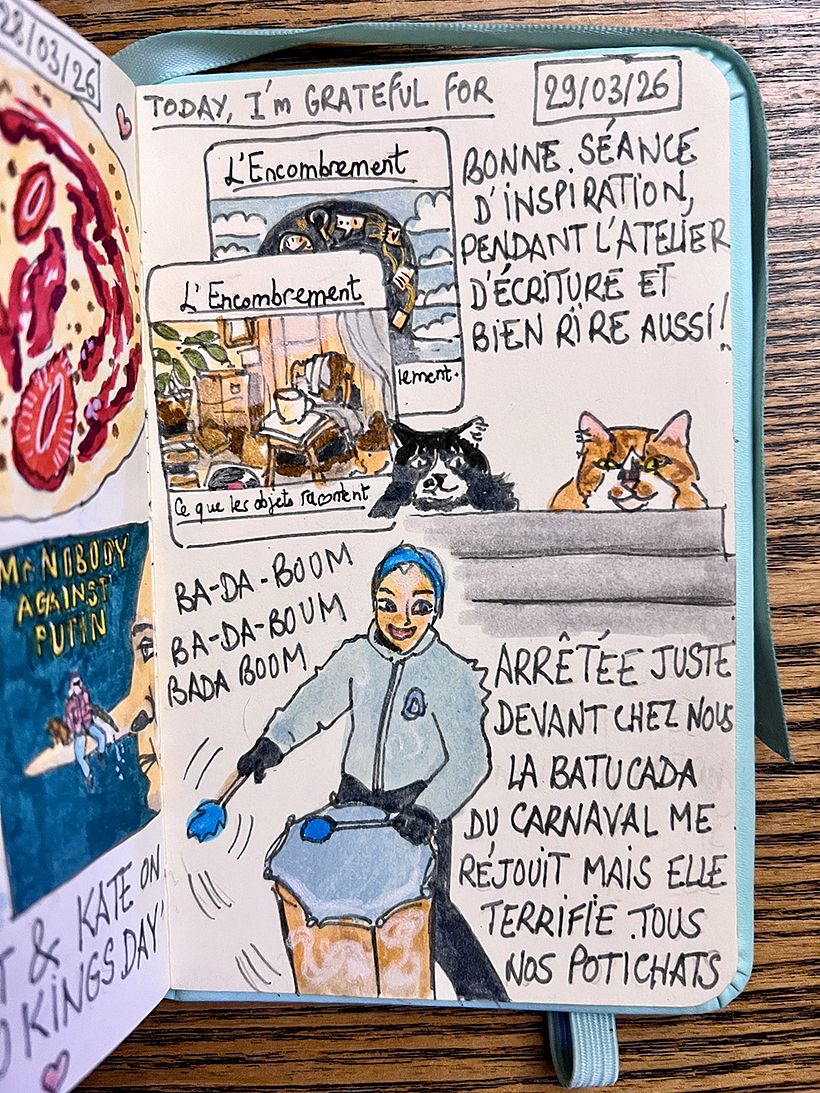 28/03/26
TODAY, I'm GRATEFUL FOR
29/03/26
L'Encombrement
L'Encombrement
lement.
Ce que les objets racontent
BONNE SÉANCE
D'INSPIRATION,
PENDANT L'ATELIER
D'ÉCRITURE ET
BIEN RIRE AUSSI!
BA-DA-BOOM
BA-DA-BOUM
BADA BOOM
ARRÊTÉE JUSTE
DEVANT CHEZ NOUS
LA BATUCADA
DU CARNAVAL ME
RÉJOUIT MAIS ELLE
TERRIFIE TOUS
NOS POTICHATS
Mr NOBODY
AGAINST
PUTIN
& KATE ON
KINGS DAY